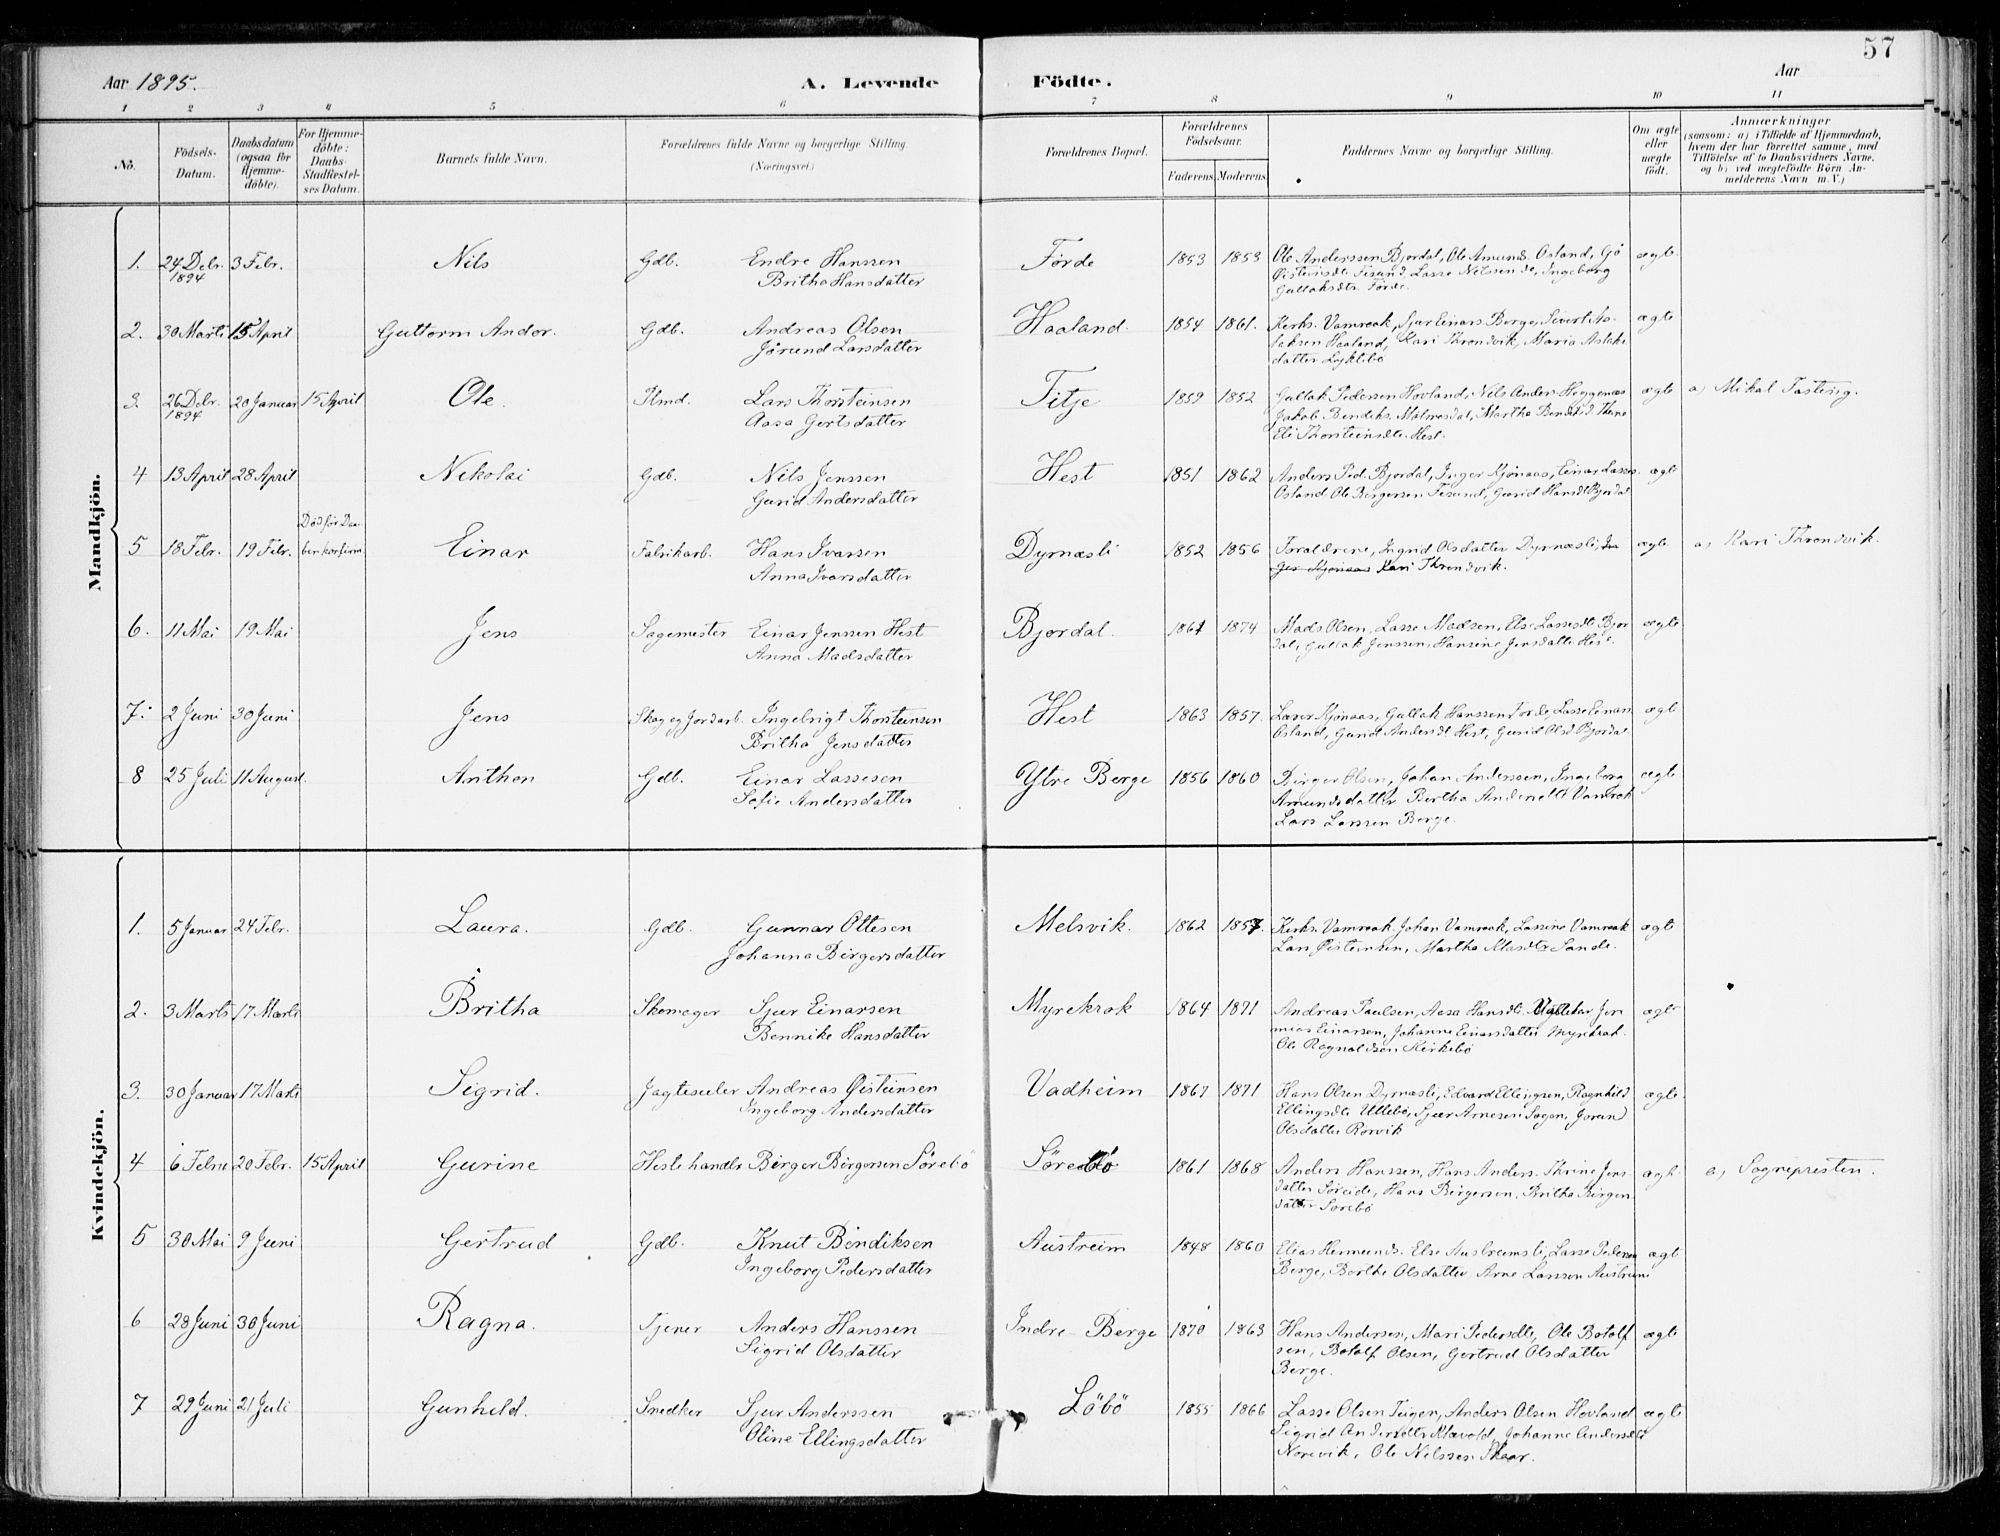 57
Aar 1895.
A. Levende Födte.
Aar
1 2 3 4 5 6 7 8 9 10 11
Nô.
Födsels-Datum.
Daabsdatum (ogsaa for Hjemme-döbte).
For Hjemme-döbte: Daabs-Stadfæstel-ses Datum.
Barnets fulde Navn.
Forældrenes fulde Navne og borgerlige Stilling. (Næringsvei.)
Forældrenes Bopæl.
Forældrenes Födselsaar.
Faderens. Moderens.
Faddernes Navne og borgerlige Stilling.
Om ægte eller uægte födt.
Anmærkninger
(saasom: a) i Tilfælde af Hjemmedaab, hvem der har forrettet samme, med Tilföielse af to Daabsvidners Navne, og b) ved uægtefödte Börn An-melderens Navn m. V.)
Mandkjön.
1. 24 Debr. 1894 3 Febr. Nils Gdb. Endre Hanssen Førde 1853 1853 Ole Anderssen Bjordal, Ole Amunds. Osland, Gjø ægte
Britha Hansdatter Øisteinsdtr. Lasse Nilssen do, Ingeborg
Gullaksdtr. Førde.
2. 30 Marts 15 April Guttorm Andor. Gdb. Andreas Olsen Haaland. 1854 1861. Kerks. Vamraak, Sjur Einars. Berge, Sivert As- ægte
Jørund Larsdatter Haaland, Kari Throndvik, Maria Aslaks
datter Lyklebø
3. 26 Debr. 1894 20 Januar 15 April Ole. Hmd. Lars Thorsteinsen Titje 1859 1852 Gullak Pedersen Hovland, Nils Anders. Heggenæs ægte a) Mikal Tasting.
Aasa Gertsdatter Jakob Bendiks. Malmesdal, Martha
Eli Thorsteinsdtr. Hest.
4 13 April 28 April Nikolai Gdb. Nils Jenssen Hest 1851 1862 Anders Ped. Bjordal, Inger Mjønaas, Einar Lasses. ægte
Gurid Andersdatter Osland, Ole Birgersen, Gurid Hansdt. Bjordal
5 18 Febr. 19 Febr. Død før Daa-ben konfirm. Einar Fabrikarb. Hans Ivarsen Dyrnæsli 1852 1856 Forældrene, Ingrid Olsdatter Dyrnæsli, In- ægte a) Kari Throndvik.
Anna Ivarsdatter ger Mjønaas Kari Throndvik.
6. 11 Mai 19 Mai Jens Sagemester Einar Jenssen Hest Bjordal. 1867 1874 Mads Olsen, Lasse Madsen, Else Lassesdt. Bjor ægte
Anna Madsdatter dal, Gullak Jenssen, Hansine Jensdatter Hest.
7. 2 Juni 30 Juni Jens Skog og Jordarb. Ingebrigt Thorsteinsen Hest 1863 1857. Mjønaas, Gullak Hanssen Førde, Lasse Einars. ægte
Britha Jensdatter Osland, Gurid Andersdt Hest, Gurid Olsd. Bjordal
8 25 Juli 11 August. Anthon Gdb. Einar Lassesen Ytre Berge 1856 1860 Birger Olsen, Johan Anderssen, Ingeborg ægte
Sofie Andersdatter Amundsdatter, Bertha Andersdtr Vamrak
Lars Larssen Berge.
Kvindekjön.
1. 5 Januar 24 Febr. Laura. Gdb. Gunnar Ottesen Melsvik. 1862 1857. Kerks. Vamraak, Johan Vamraak, Lassine Vamraak ægte
Johanna Birgersdatter Lars Øisteinsen, Martha Sande.
2. 3 Marts 17 Marts Britha Skomager Sjur Einarsen Myrekrok 1864 1871 Andreas Paulsen, Aasa Hansdt. Jere ægte
Bennike Hansdatter mias Einarsen, Johanne Einarsdatter Myrekrok.
Ole Ragnaldsen Kirkebø
3. 30 Januar 17 Marts Sigrid. Jagteseiler Andreas Øisteinsen Vadheim 1867 1871 Hans Olsen Dyrnæsli, Edvard Ellingsen, Ragnhild ægte
Ingeborg Andersdatter Ellingsdtr. Ullebø, Sjur Arnesen Sagen, Jorund
Olsdatter Rørvik
4 6 Febru 20 Febr. 15 April Gurine Hestehandlr Birger Birgersen Sørebø Sørebø 1861 1868 Anders Hanssen, Hans Anders. Thrine Jens ægte a) Sognepresten.
datter Søreide, Hans Birgersen, Britha Birgers
datter Sørebø
5 30 Mai 9 Juni Gertrud Gdb. Knut Bendiksen Austreim 1848 1860 Elias Hermunds. Else Austreimsli, Lasse Pedersen ægte
Ingeborg Pedersdatter Berge, Berthe Olsdatter, Arne Larssen Austreim
6 28 Juni 30 Juni Ragna. Tjener Anders Hanssen Indre Berge 1870 1863 Hans Andersen, Mari Pedersdtr, Ole Botolf ægte
Sigrid Olsdatter sen, Botolf Olsen, Gertrud Olsdatter
Berge.
7 29 Juni 21 Juli Gunhild. Snedker Sjur Anderssen Løbø 1855 1866 Lasse Olsen Teigen, Anders Olsen Hovland ægte
Oline Ellingsdatter Sigrid Andersdtr. Johanne Andersdt
Norevik, Ole Nilssen Skaar.